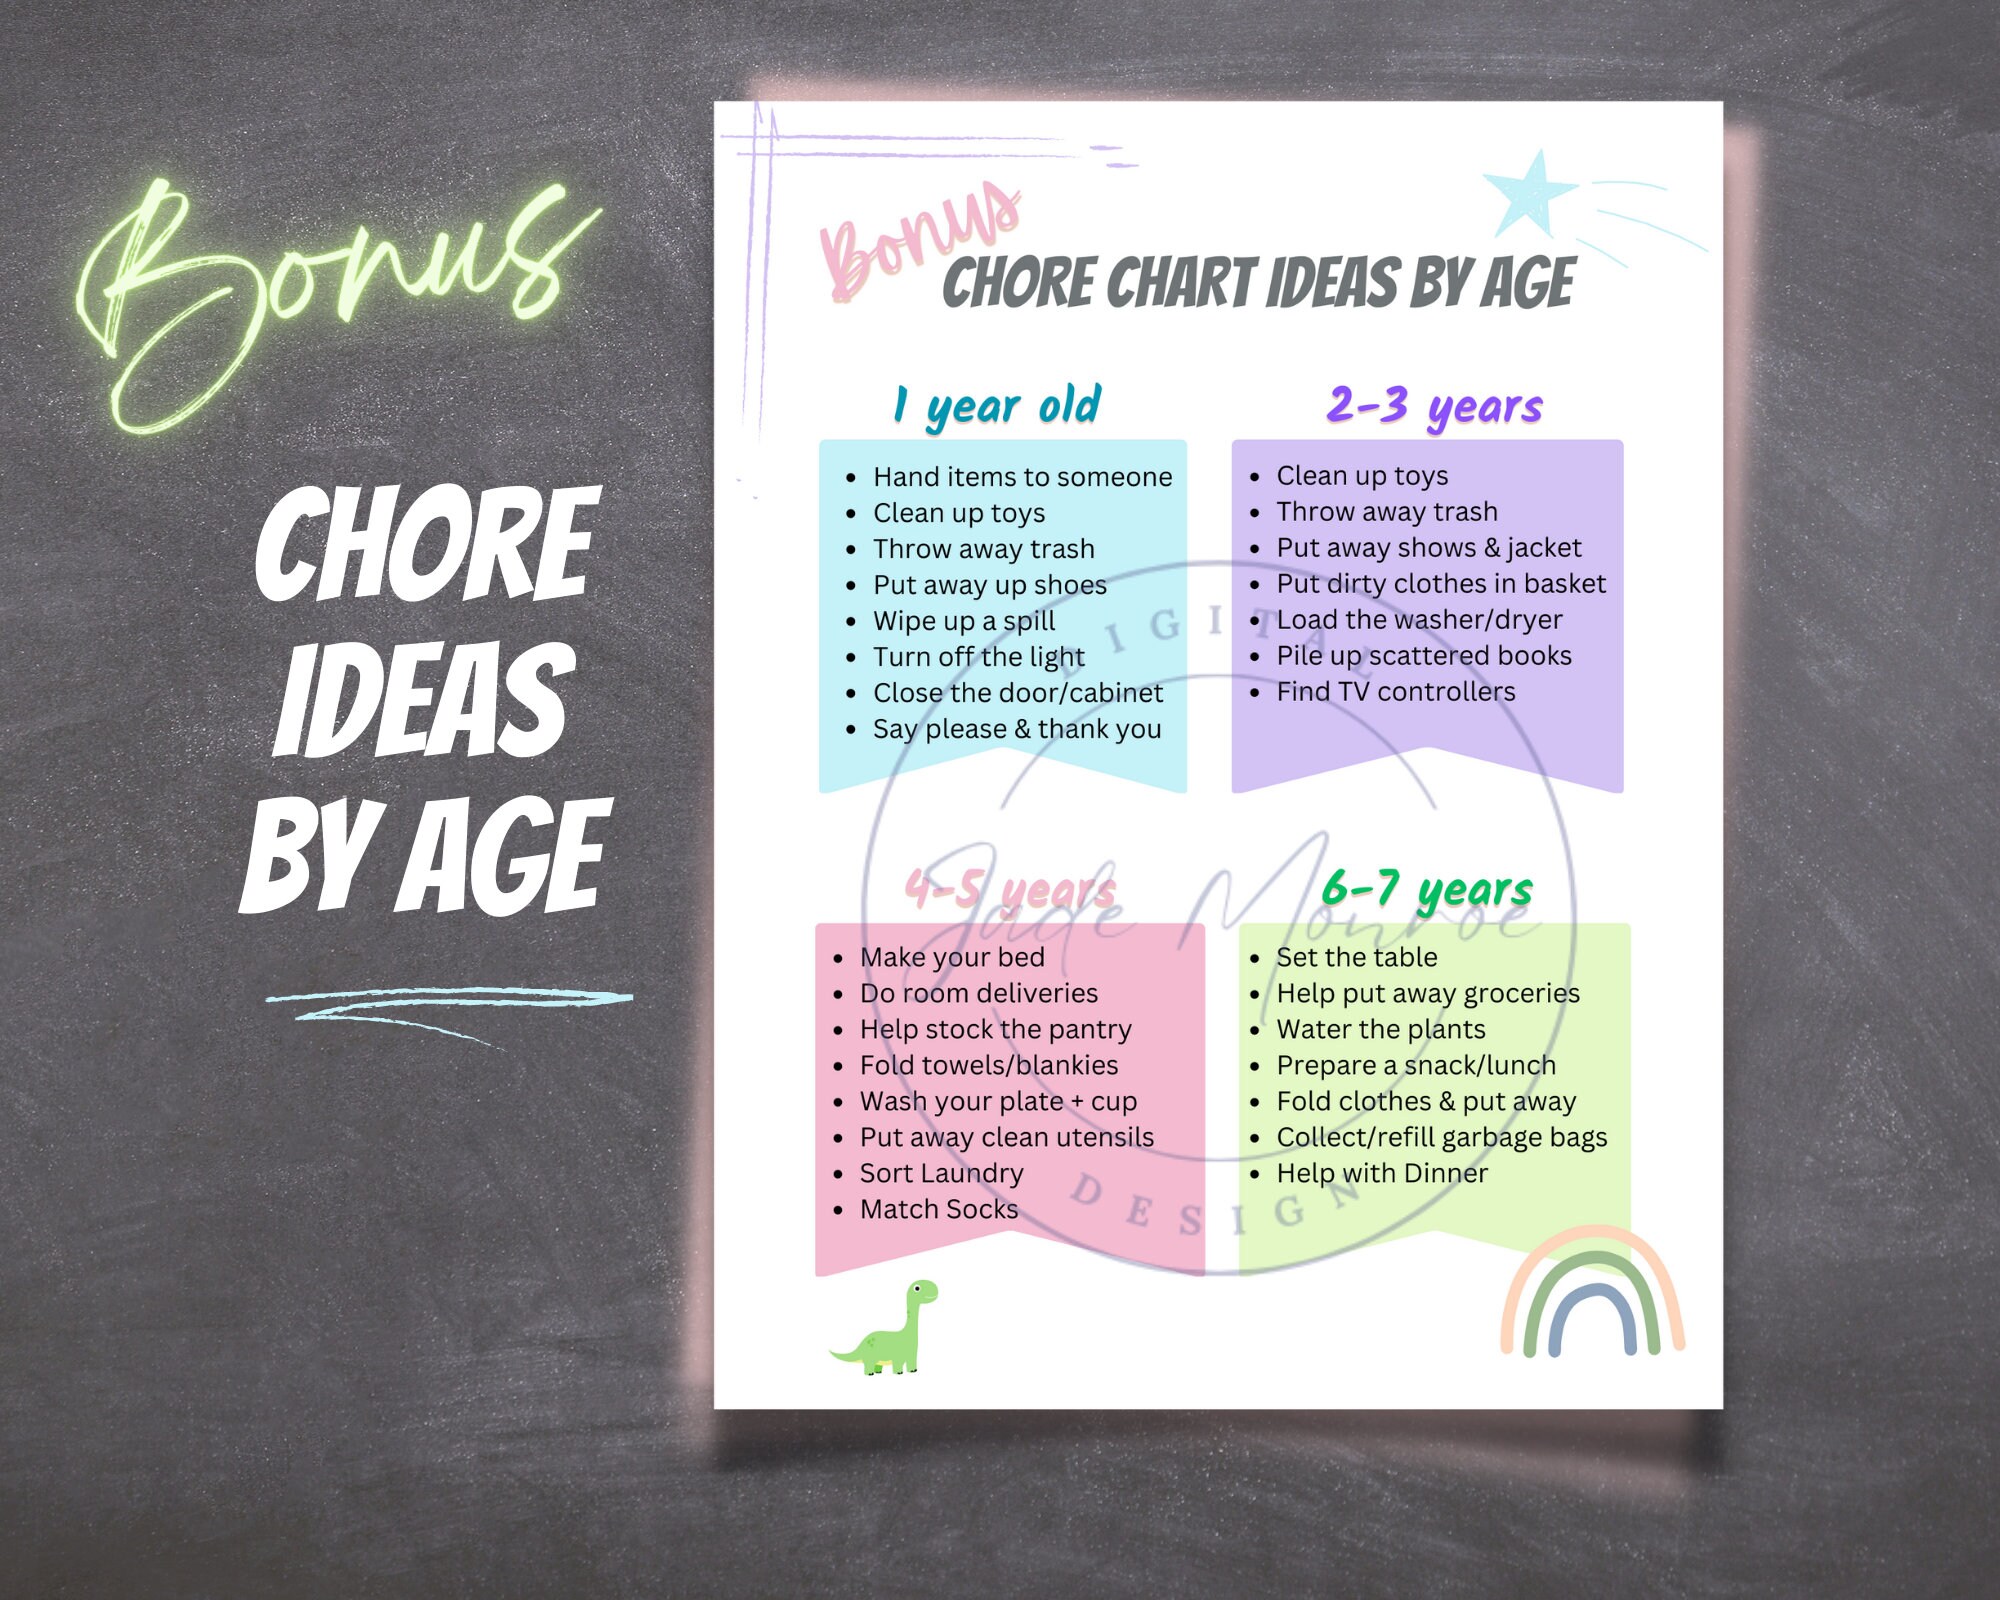 Bonus
CHORE
IDEAS
BY AGE
Bonus
CHORE CHART IDEAS BY AGE
1 year old
• Hand items to someone
• Clean up toys
• Throw away trash
• Put away up shoes
• Wipe up a spill
• Turn off the light
• Close the door/cabinet
• Say please & thank you
2-3 years
• Clean up toys
• Throw away trash
• Put away shows & jacket
• Put dirty clothes in basket
• Load the washer/dryer
• Pile up scattered books
• Find TV controllers
4-5 years
• Make your bed
• Do room deliveries
• Help stock the pantry
• Fold towels/blankies
• Wash your plate + cup
• Put away clean utensils
• Sort Laundry
• Match Socks
6-7 years
• Set the table
• Help put away groceries
• Water the plants
• Prepare a snack/lunch
• Fold clothes & put away
• Collect/refill garbage bags
• Help with Dinner
DIGITAL
Jade Monroe
DESIGN